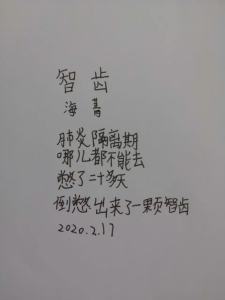 智齿
海菁
肺炎隔离期
哪儿都不能去
憋了二十多天
倒憋出来了一颗智齿
2020.2.17